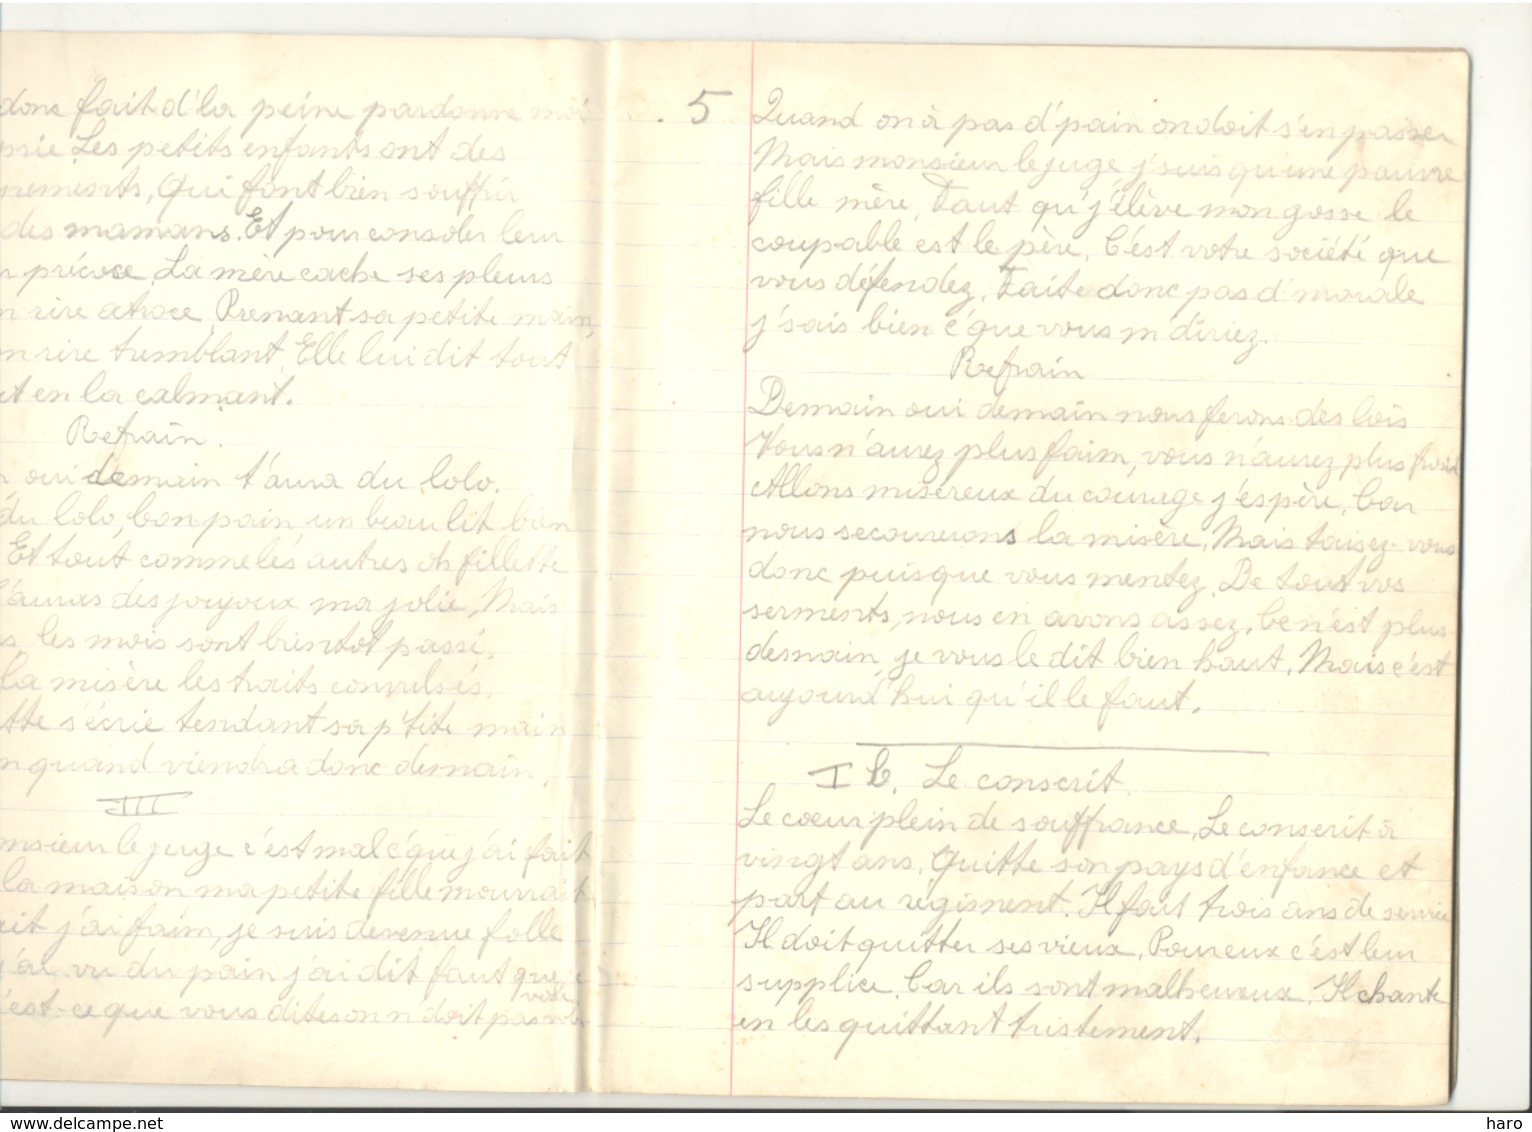 donc fait d'la peine pardonne moi
prie. Les petits enfants ont des
Qui font bien souffrir
des mamans. Et pour consoler leur
précoce. La mère cache ses pleurs
rire atroce. Prenant sa petite main,
rire tremblant. Elle lui dit tout
en la calmant.
Refrain.
oui demain t'aura du lolo.
du lolo, bon pain un beau lit bien
Et tout comme les autres oh fillette
T'auras des joujoux ma jolie. Mais
les mois sont bientot passé.
la misère les traits convulsés.
s'écrie tendant sa p'tite main
quand viendra donc demain.
III
le juge c'est mal c'que j'ai fait
la maison ma petite fille mourrait
j'ai faim, je suis devenue folle
vu du pain j'ai dit faut que
est-ce que vous dites on n'doit pas voler
5
Quand on à pas d'pain on doit s'en passer
Mais monsieur le juge j'suis qu'une pauvre
fille mère. Faut qu'j'élève mon gosse le
coupable est le père. C'est votre société que
vous défendez. Faite donc pas d'morale
j'sais bien c'que vous m'diriez.
Refrain
Demain oui demain nous ferons des lois
Vous n'aurez plus faim, vous n'aurez plus froid
Allons miséreux du courage j'espère. Car
nous secourerons la misère. Mais taisez-vous
donc puisque vous mentez. De tout vos
serments, nous en avons assez. Ce n'est plus
demain je vous le dit bien haut. Mais c'est
aujourd'hui qu'il le faut.
I Le conscrit.
Le coeur plein de souffrance. Le conscrit à
vingt ans. Quitte son pays d'enfance et
part au régiment. Il faut trois ans de service
Il doit quitter ses vieux. Pour eux c'est leur
supplice. Car ils sont malheureux. Il chante
en les quittant tristement.
www.delcampe.net
haro